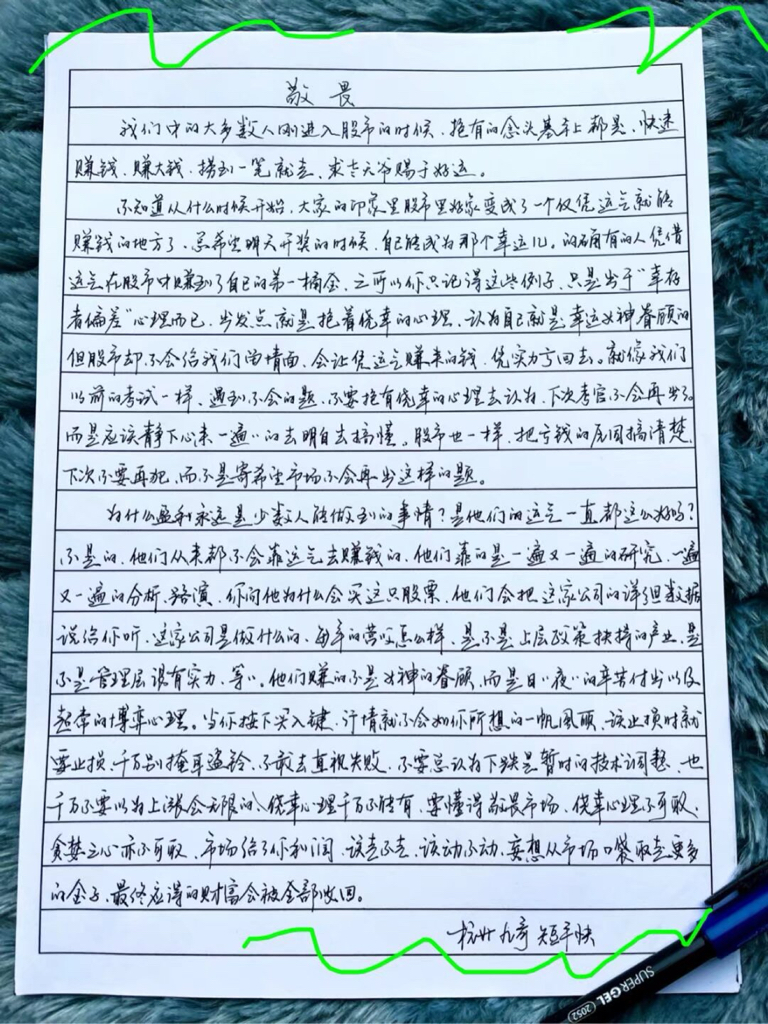 敬畏
我们中的大多数人刚进入股市的时候、抱有的念头基本上都是、快速
赚钱、赚大钱、捞到一笔就走、求老天爷赐予好运。
不知道从什么时候开始，大家的印象里股市里好象变成了一个仅凭运气就能
赚钱的地方了、总希望明天开奖的时候、自己能成为那个幸运儿。的确有的人凭借
运气在股市中赚到了自己的第一桶金、之所以你只记得这些例子、只是出于“幸存
者偏差”心理而已、出发点就是抱着侥幸的心理、认为自己就是幸运女神眷顾的
但股市却不会给我们留情面、会让凭运气赚来的钱、凭实力亏回去。就像我们
以前的考试一样、遇到不会的题、不要抱有侥幸的心理去认为、下次考官不会再出了。
而是应该静下心来一遍〃的去明白去搞懂。股市也一样、把亏钱的原因搞清楚、
下次不要再犯、而不是寄希望市场不会再出这样的题。
为什么盈利永远是少数人能做到的事情？是他们的运气一直都这么好吗？
不是的、他们从来都不会靠运气去赚钱的、他们靠的是一遍又一遍的研究、一遍
又一遍的分析、路演、你问他为什么会买这只股票、他们会把这家公司的详细数据
说给你听、这家公司是做什么的、每年的营收怎么样、是不是上层政策扶持的产业、是
不是管理层没有实力、等〃。他们赚的不是女神的眷顾、而是日〃夜〃的辛苦付出以及
超常的博弈心理。当你按下买入键、行情就不会如你所想的一帆风顺、该止损时就
要止损、千万别掩耳盗铃、不敢去直视失败、不要总认为下跌是暂时的技术调整、也
千万不要以为上涨会无限的、侥幸心理千万不能有、要懂得敬畏市场、侥幸心理不可取、
贪婪之心亦不可取、市场给了你利润、该走不走、该动不动、妄想从市场口袋取走更多
的金子、最终应得的财富会被全部收回。
杭州九哥 短平快
SUPER GEL 2052